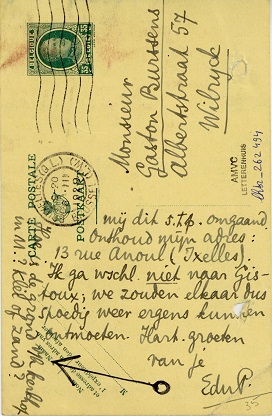 BELGIQUE
BELGIË
35
Monsieur
Gaston Burssens
Albertstraat 57
Wilryck
CARTE POSTALE
POSTKAART
AMVC
LETTERENHUIS
262 494
mij dit s.t.p. omgaand
Onthoud mijn adres:
13 rue Anoul (Ixelles).
Ik ga wschl. niet naar Gis-
toux; we zouden elkaar dus
spoedig weer ergens kunnen
ontmoeten. Hart. groeten
van je
EduP.
in M.? Klei of zand?
35